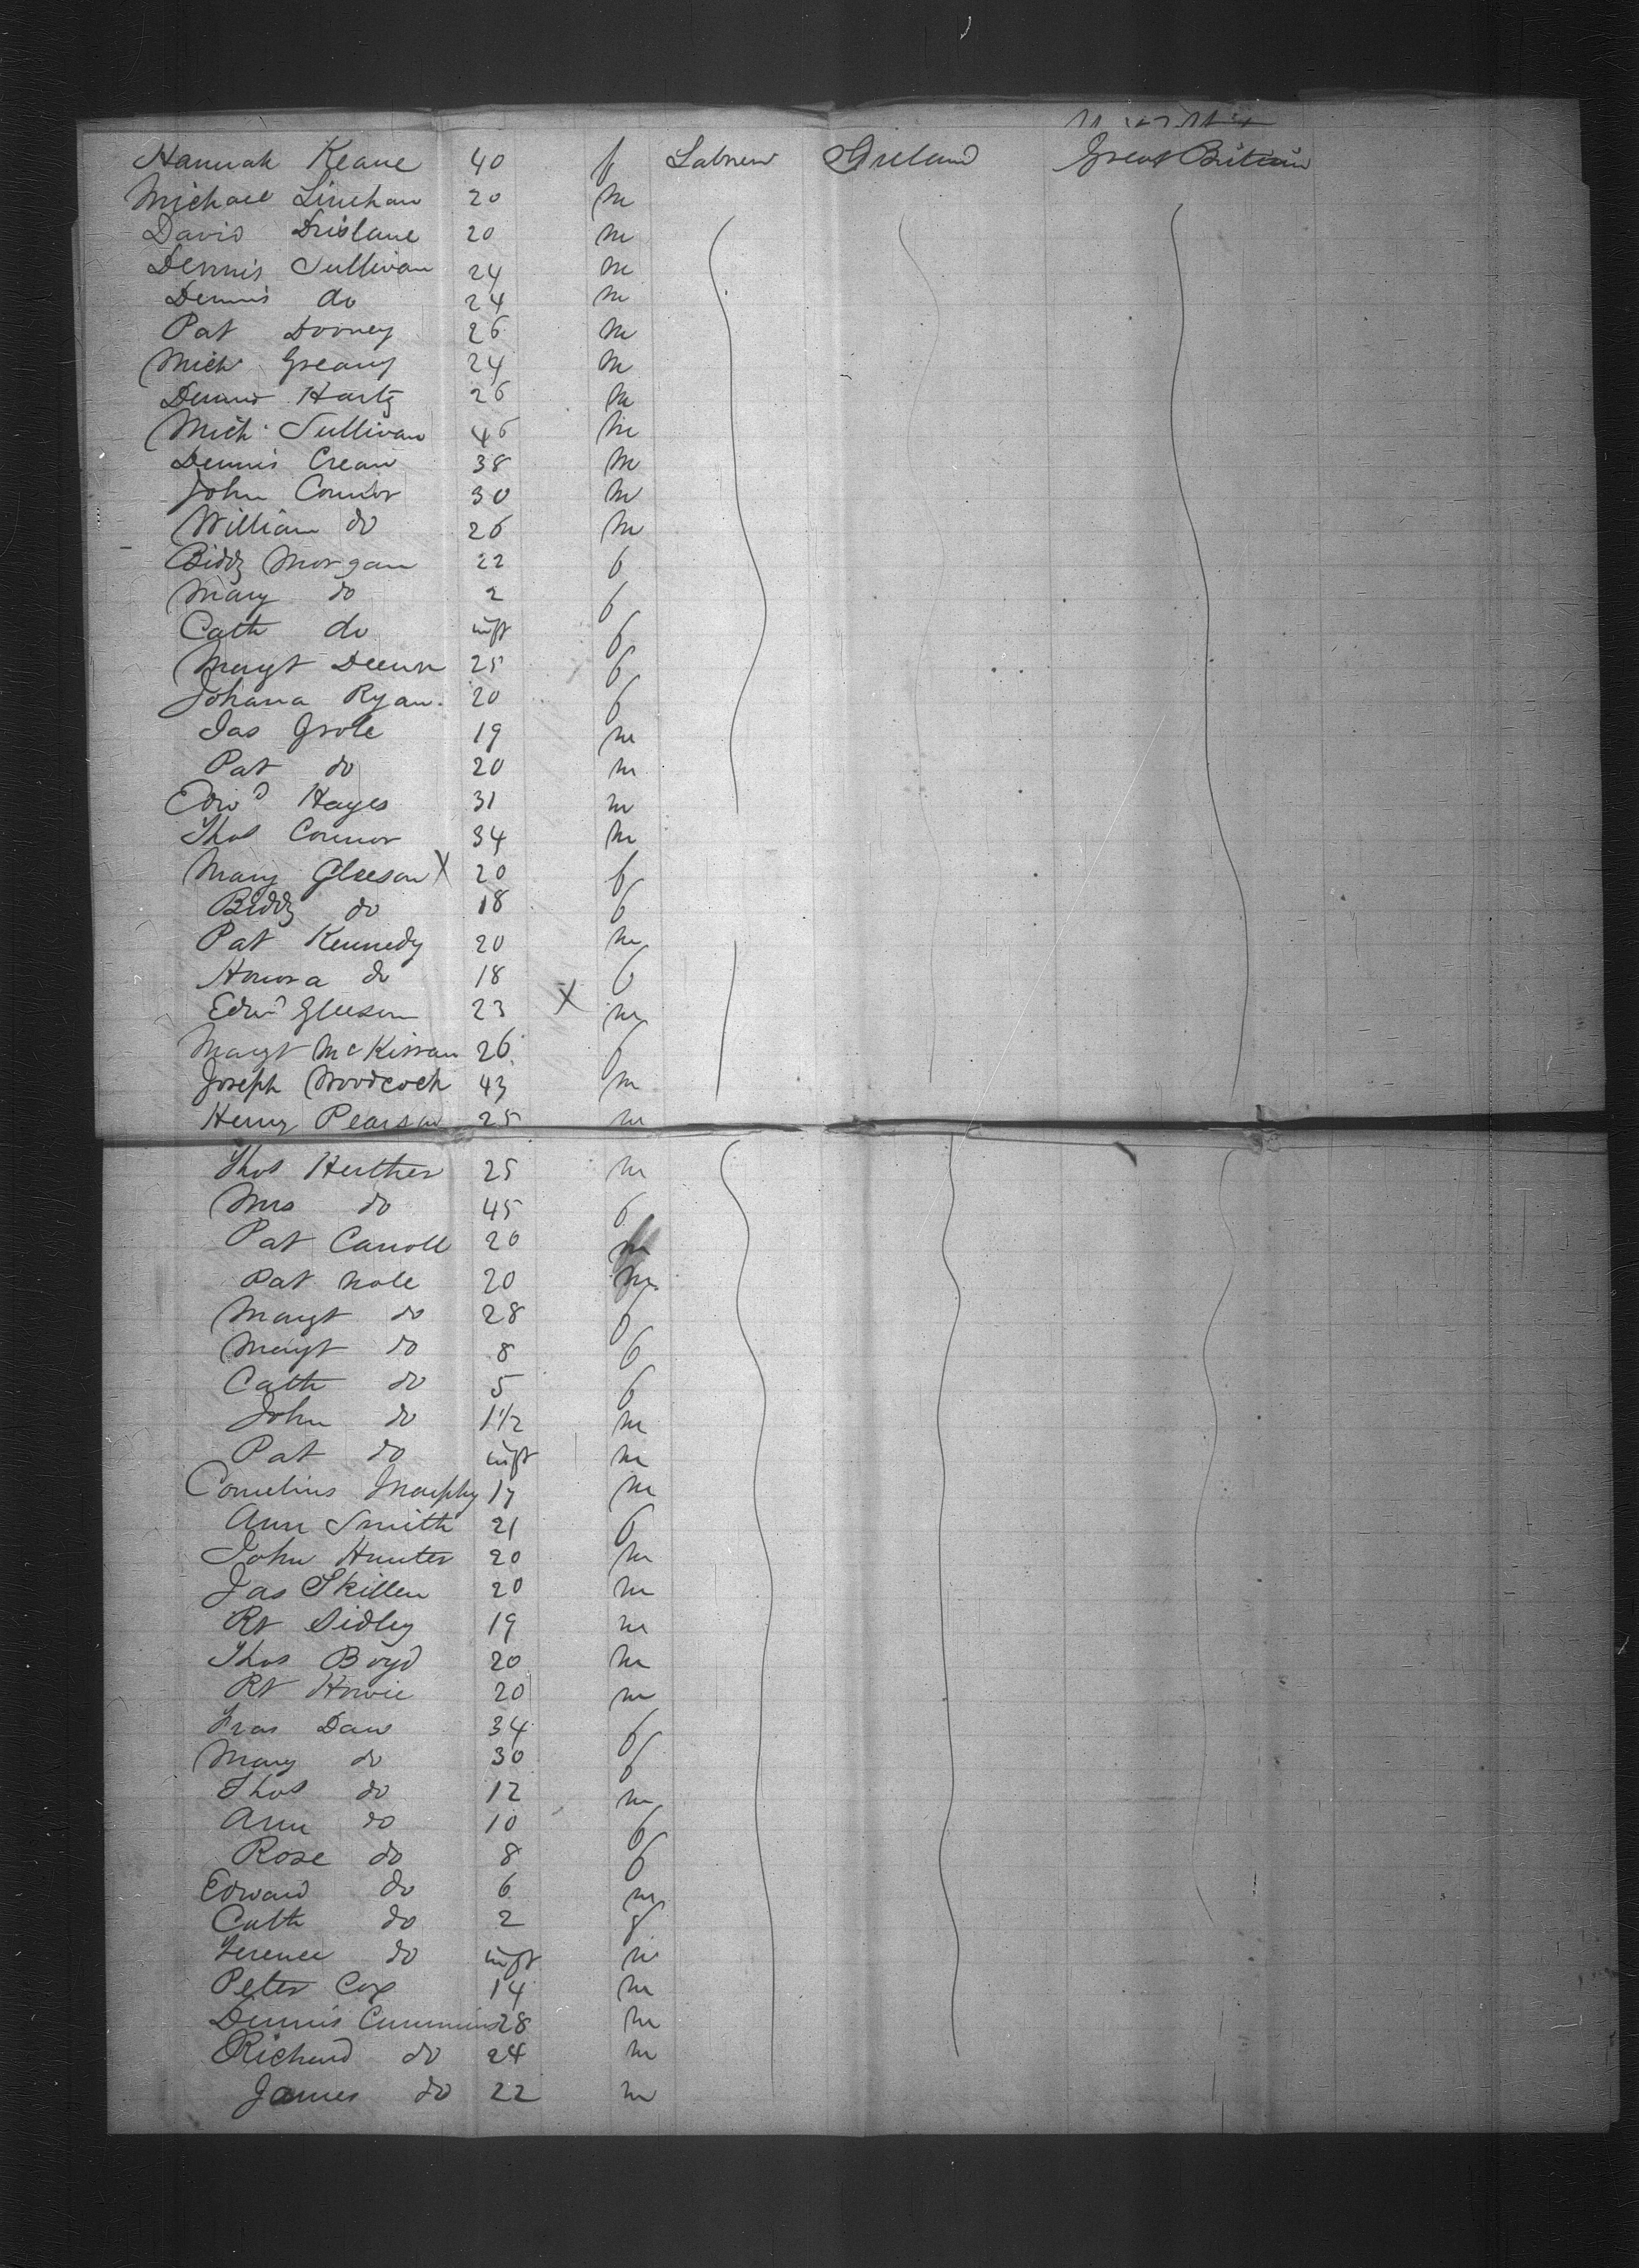 Hannah Keane 40 f Labrew Ireland Great Britain
Michael Linehan 20 m
David Drislane 20 m
Dennis Sullivan 24 m
Dennis do 24 m
Pat Dooney 26 m
Mich Greany 24 m
Dennis Hartz 26 m
Mich Sullivan 46 m
Dennis Crean 38 m
John Connor 30 m
William do 26 m
Biddy Morgan 22 f
Mary do 2 f
Cath do inft f
Margt 25 f
Johana Ryan 20 f
Jas Grole 19 m
Pat do 20 m
Edwd Hayes 31 m
Thos Connor 34 m
Mary Gleeson X 20 f
Biddy do 18 f
Pat Kennedy 20 m
Honora do 18 f
Edwd Gleeson 23 X m
Margt McKissan 26 f
Joseph Woodcock 43 m
Henry Pearson 25 m
Thos Huther 25 m
Mrs do 45 f
Pat Carroll 20 m
Pat Nole 20 m
Margt do 28 f
Margt do 8 f
Cath do 5 f
John do 1 1/2 m
Pat do inft m
Cornelius Murphy 17 m
Ann Smith 21 f
John Hunter 20 m
Jas Skillen 20 m
Rt Sidley 19 m
Thos Boyd 20 m
Rt Howie 20 m
Fras Daw 34 f
Mary do 30 f
Thos do 12 m
Ann do 10 f
Rose do 8 f
Edward do 6 m
Cath do 2 f
Terence do inft m
Peter Cox 14 m
Dennis Cummins 28 m
Richard do 24 m
James do 22 m